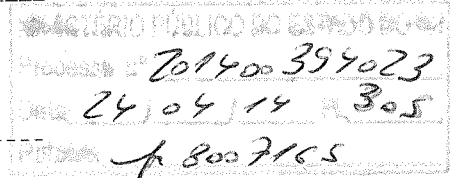 MINISTÉRIO PÚBLICO DO ESTADO DO
Processo nº 201400394023
Data 24 / 04 / 14 Fl. 305
p 8007165